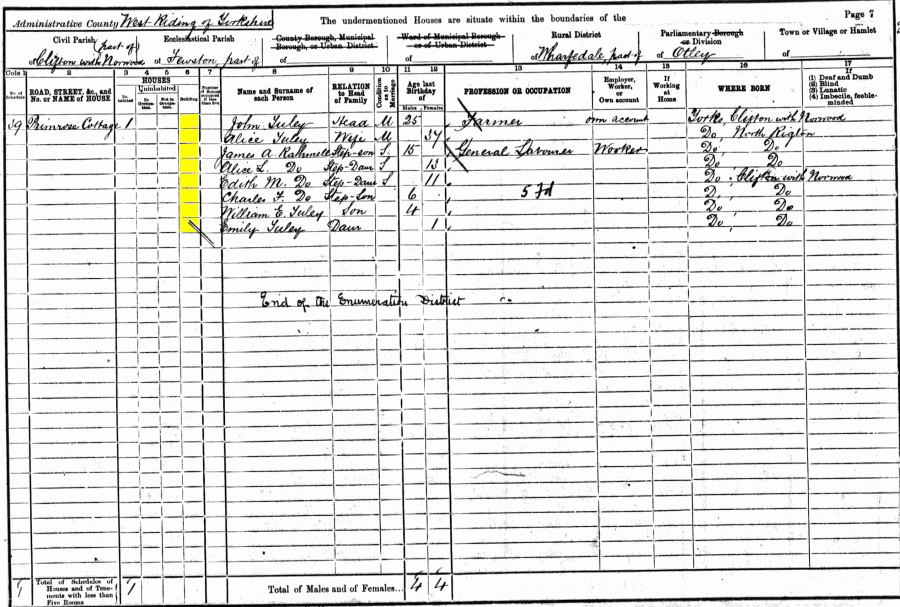 Administrative County West Riding of Yorkshire The undermentioned Houses are situate within the boundaries of the Page 7
Civil Parish (part of) Ecclesiastical Parish County Borough, Municipal Borough, or Urban District Ward of Municipal Borough or of Urban District Rural District Parliamentary Borough or Division Town or Village or Hamlet
of Clifton with Norwood of Fewston, part of of of of Wharfedale, part of of Otley of
Cols 1 2 3 4 5 6 7 8 9 10 11 12 13 14 15 16 17
No. of Schedule ROAD, STREET, &c., and No. or NAME of HOUSE HOUSES Inhabited Uninhabited In Occupation Not in Occupation Building Number of Rooms occupied if less than five Name and Surname of each Person RELATION to Head of Family Condition as to Marriage Age last Birthday of Males Females PROFESSION OR OCCUPATION Employer, Worker, or Own account If Working at Home WHERE BORN If (1) Deaf and Dumb (2) Blind (3) Lunatic (4) Imbecile, feeble-minded
39 Primrose Cottage 1 John Tuley Head M 25 Farmer own account Yorks, Clifton with Norwood
Alice Tuley Wife M 37 Do, North Rigton
James A. Rathmell Step-son S. 15 General Labourer Worker Do Do
Alice L. Do Step-Daur S 13 Do Do
Edith M. Do Step-Daur S 11 Do, Clifton with Norwood
Charles F. Do Step-Son 6 Do, Do
William E. Tuley Son 4 Do Do
Emily Tuley Daur 1 Do, Do
End of the Enumeration District
Total of Schedules of Houses and of Tenements with less than Five Rooms Total of Males and of Females... 4 4